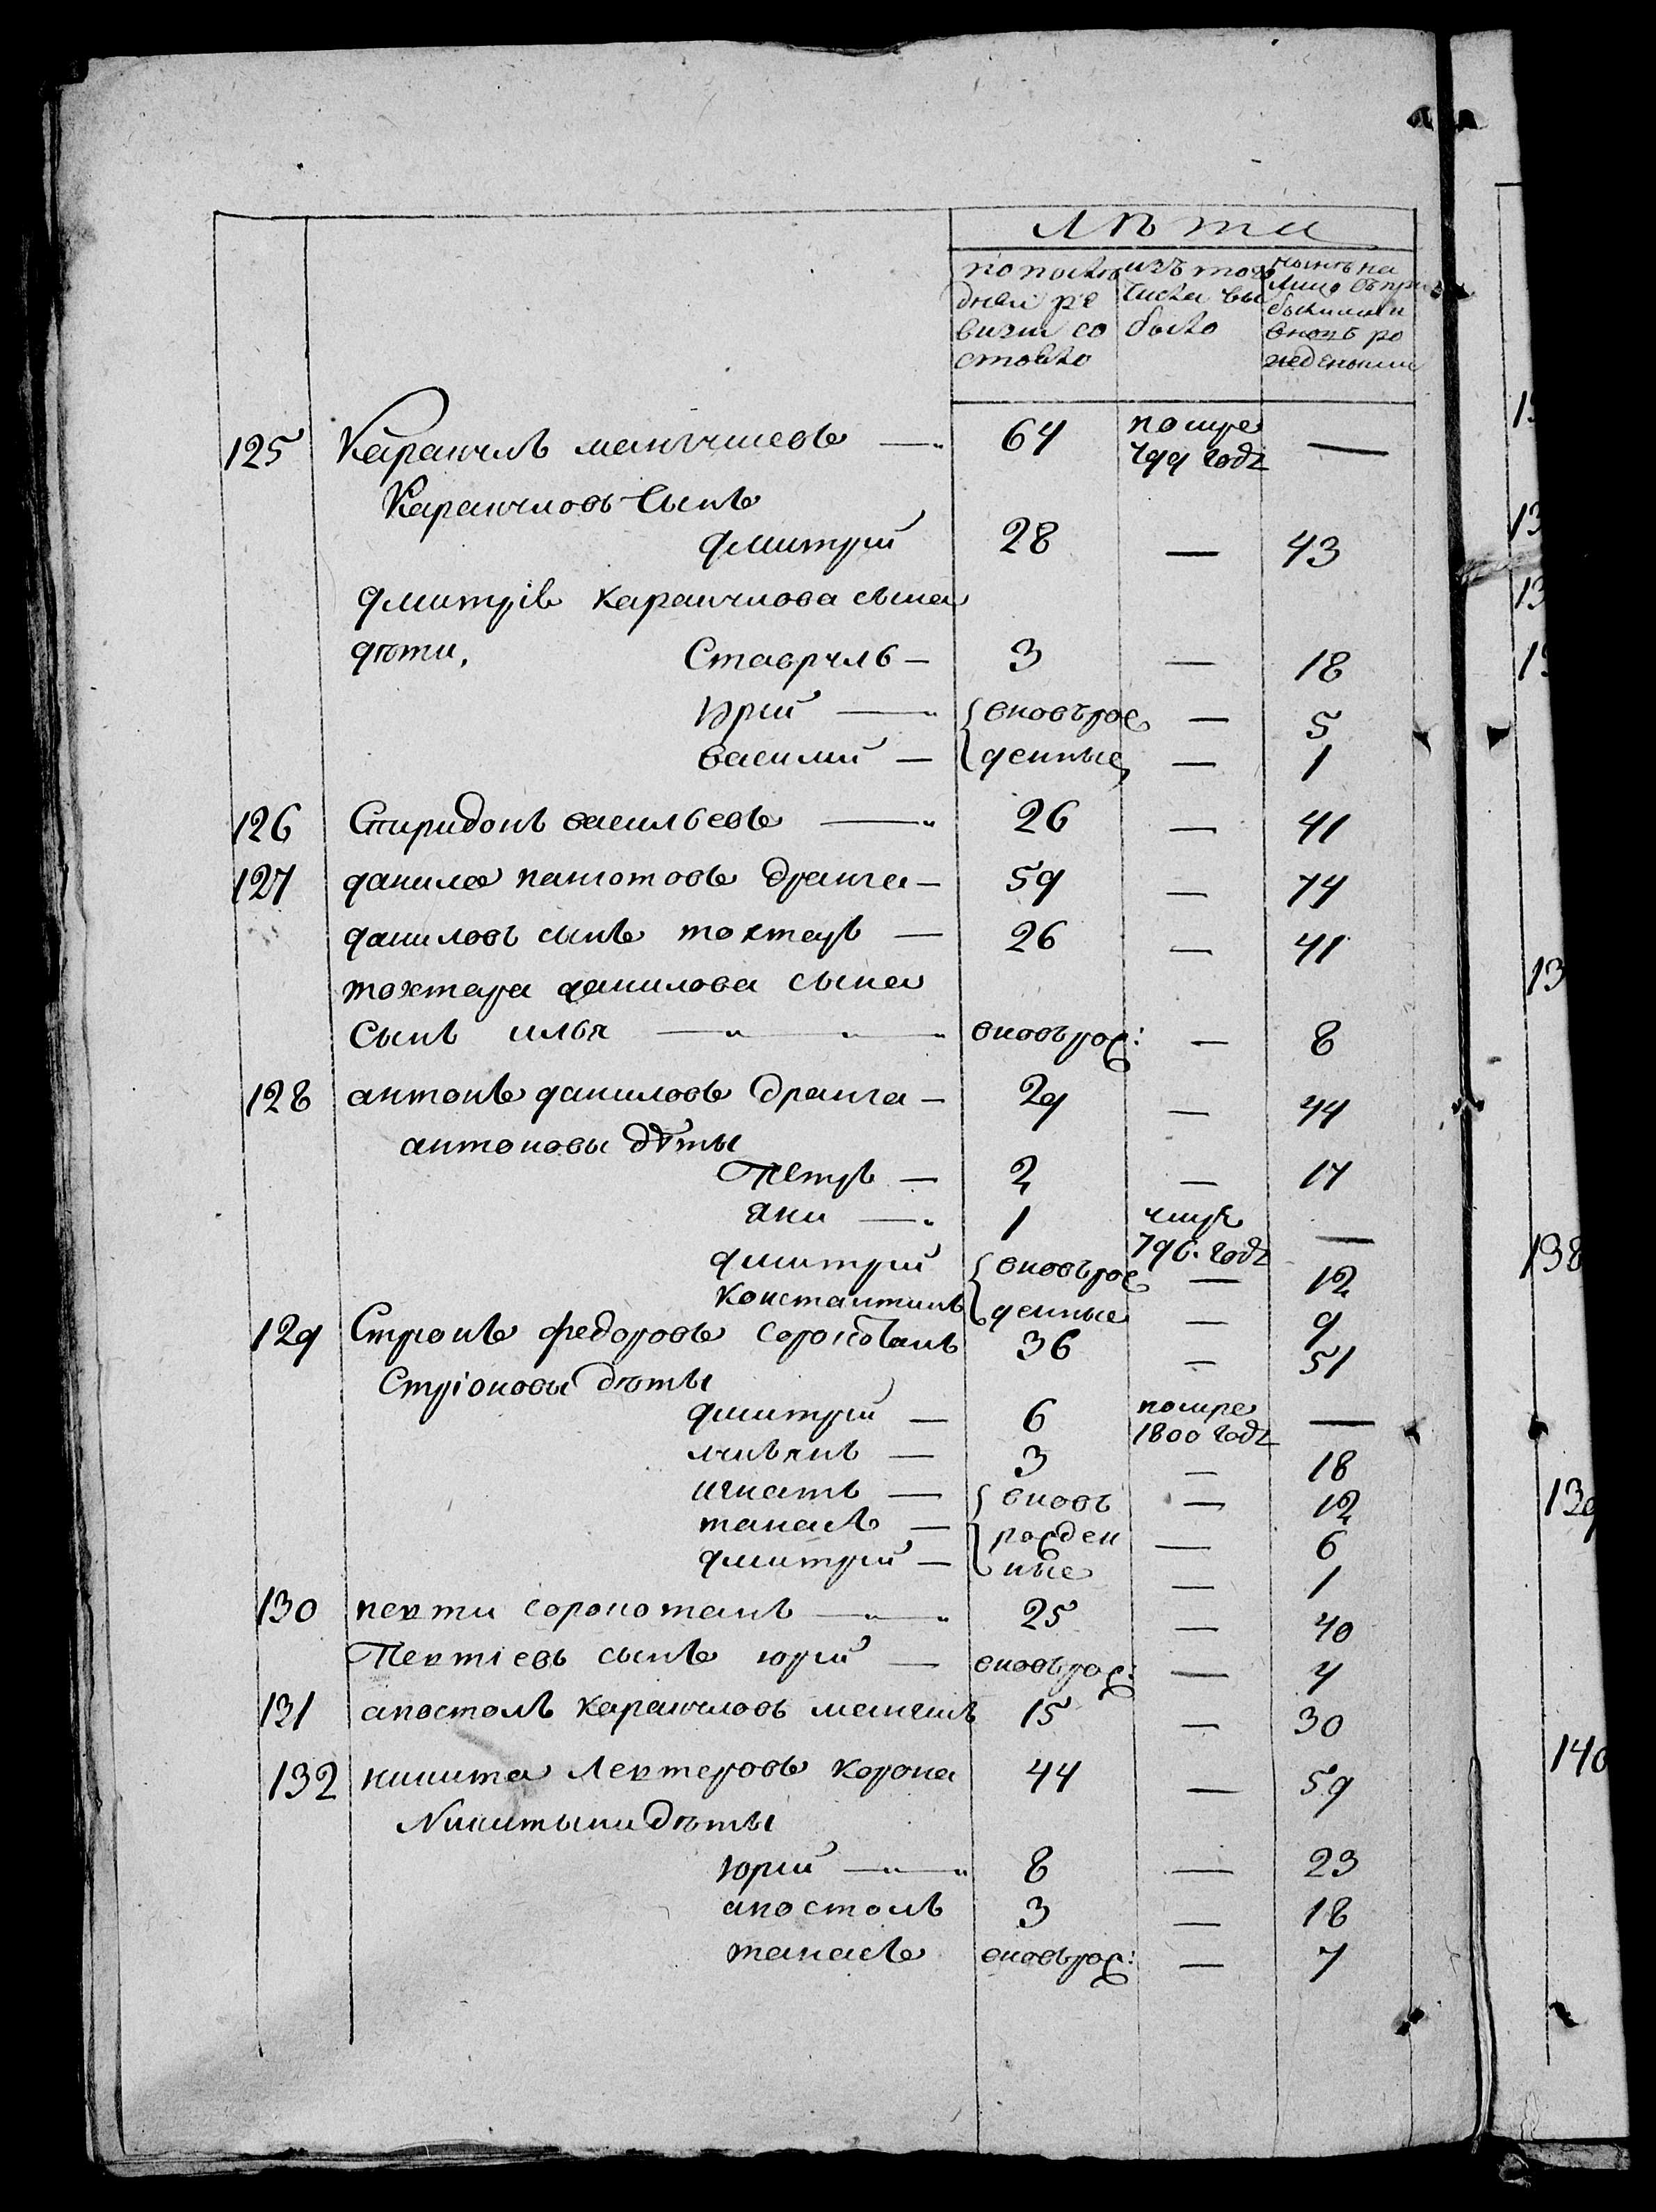 Лѣта
по послѣ
дней ре
визіи со
стояло
изъ того
числа вы
было
нынѣ на
лицо съ при
былыми и
вновь ро
жденными
125 Каранчилъ — 64 помре 799 годꙋ —
Каранчиловъ Сынъ
дмитрий 28 — 43
дмитрія каранчилова сына
дѣти, Ставрчлъ — 3 — 18
Юрий — вновь рож — 5
василий — денные — 1
126 Спиридонъ васильевъ — 26 — 41
127 данила панготовъ дранга — 59 — 74
даниловъ сынъ тохтаръ — 26 — 41
тохтара данилова сына
Сынъ илья — вновь рож: — 8
128 антонъ даниловъ дранга — 29 — 44
антоновы дѣты
Петръ — 2 — 17
яни — 1 умре 796. годꙋ —
дмитрий вновь рож — 12
Константинъ денные — 9
129 Стріонъ федоровъ 36 — 51
Стріоновы дѣты
дмитрий — 6 помре 1800 годꙋ —
— 3 — 18
игнатъ — вновь — 12
танасъ — рожден — 6
дмитрий — ные — 1
130 пекти сорокотанъ — 25 — 40
Пектіевъ сынъ юрий — вновь рож: — 4
131 апостолъ каранчиловъ 15 — 30
132 никита Лехтеровъ корона 44 — 59
Никитыни дѣты
юрий — 8 — 23
апостолъ 3 — 18
танасъ вновь рож: — 7
13
13
13
13
13
138
139
140